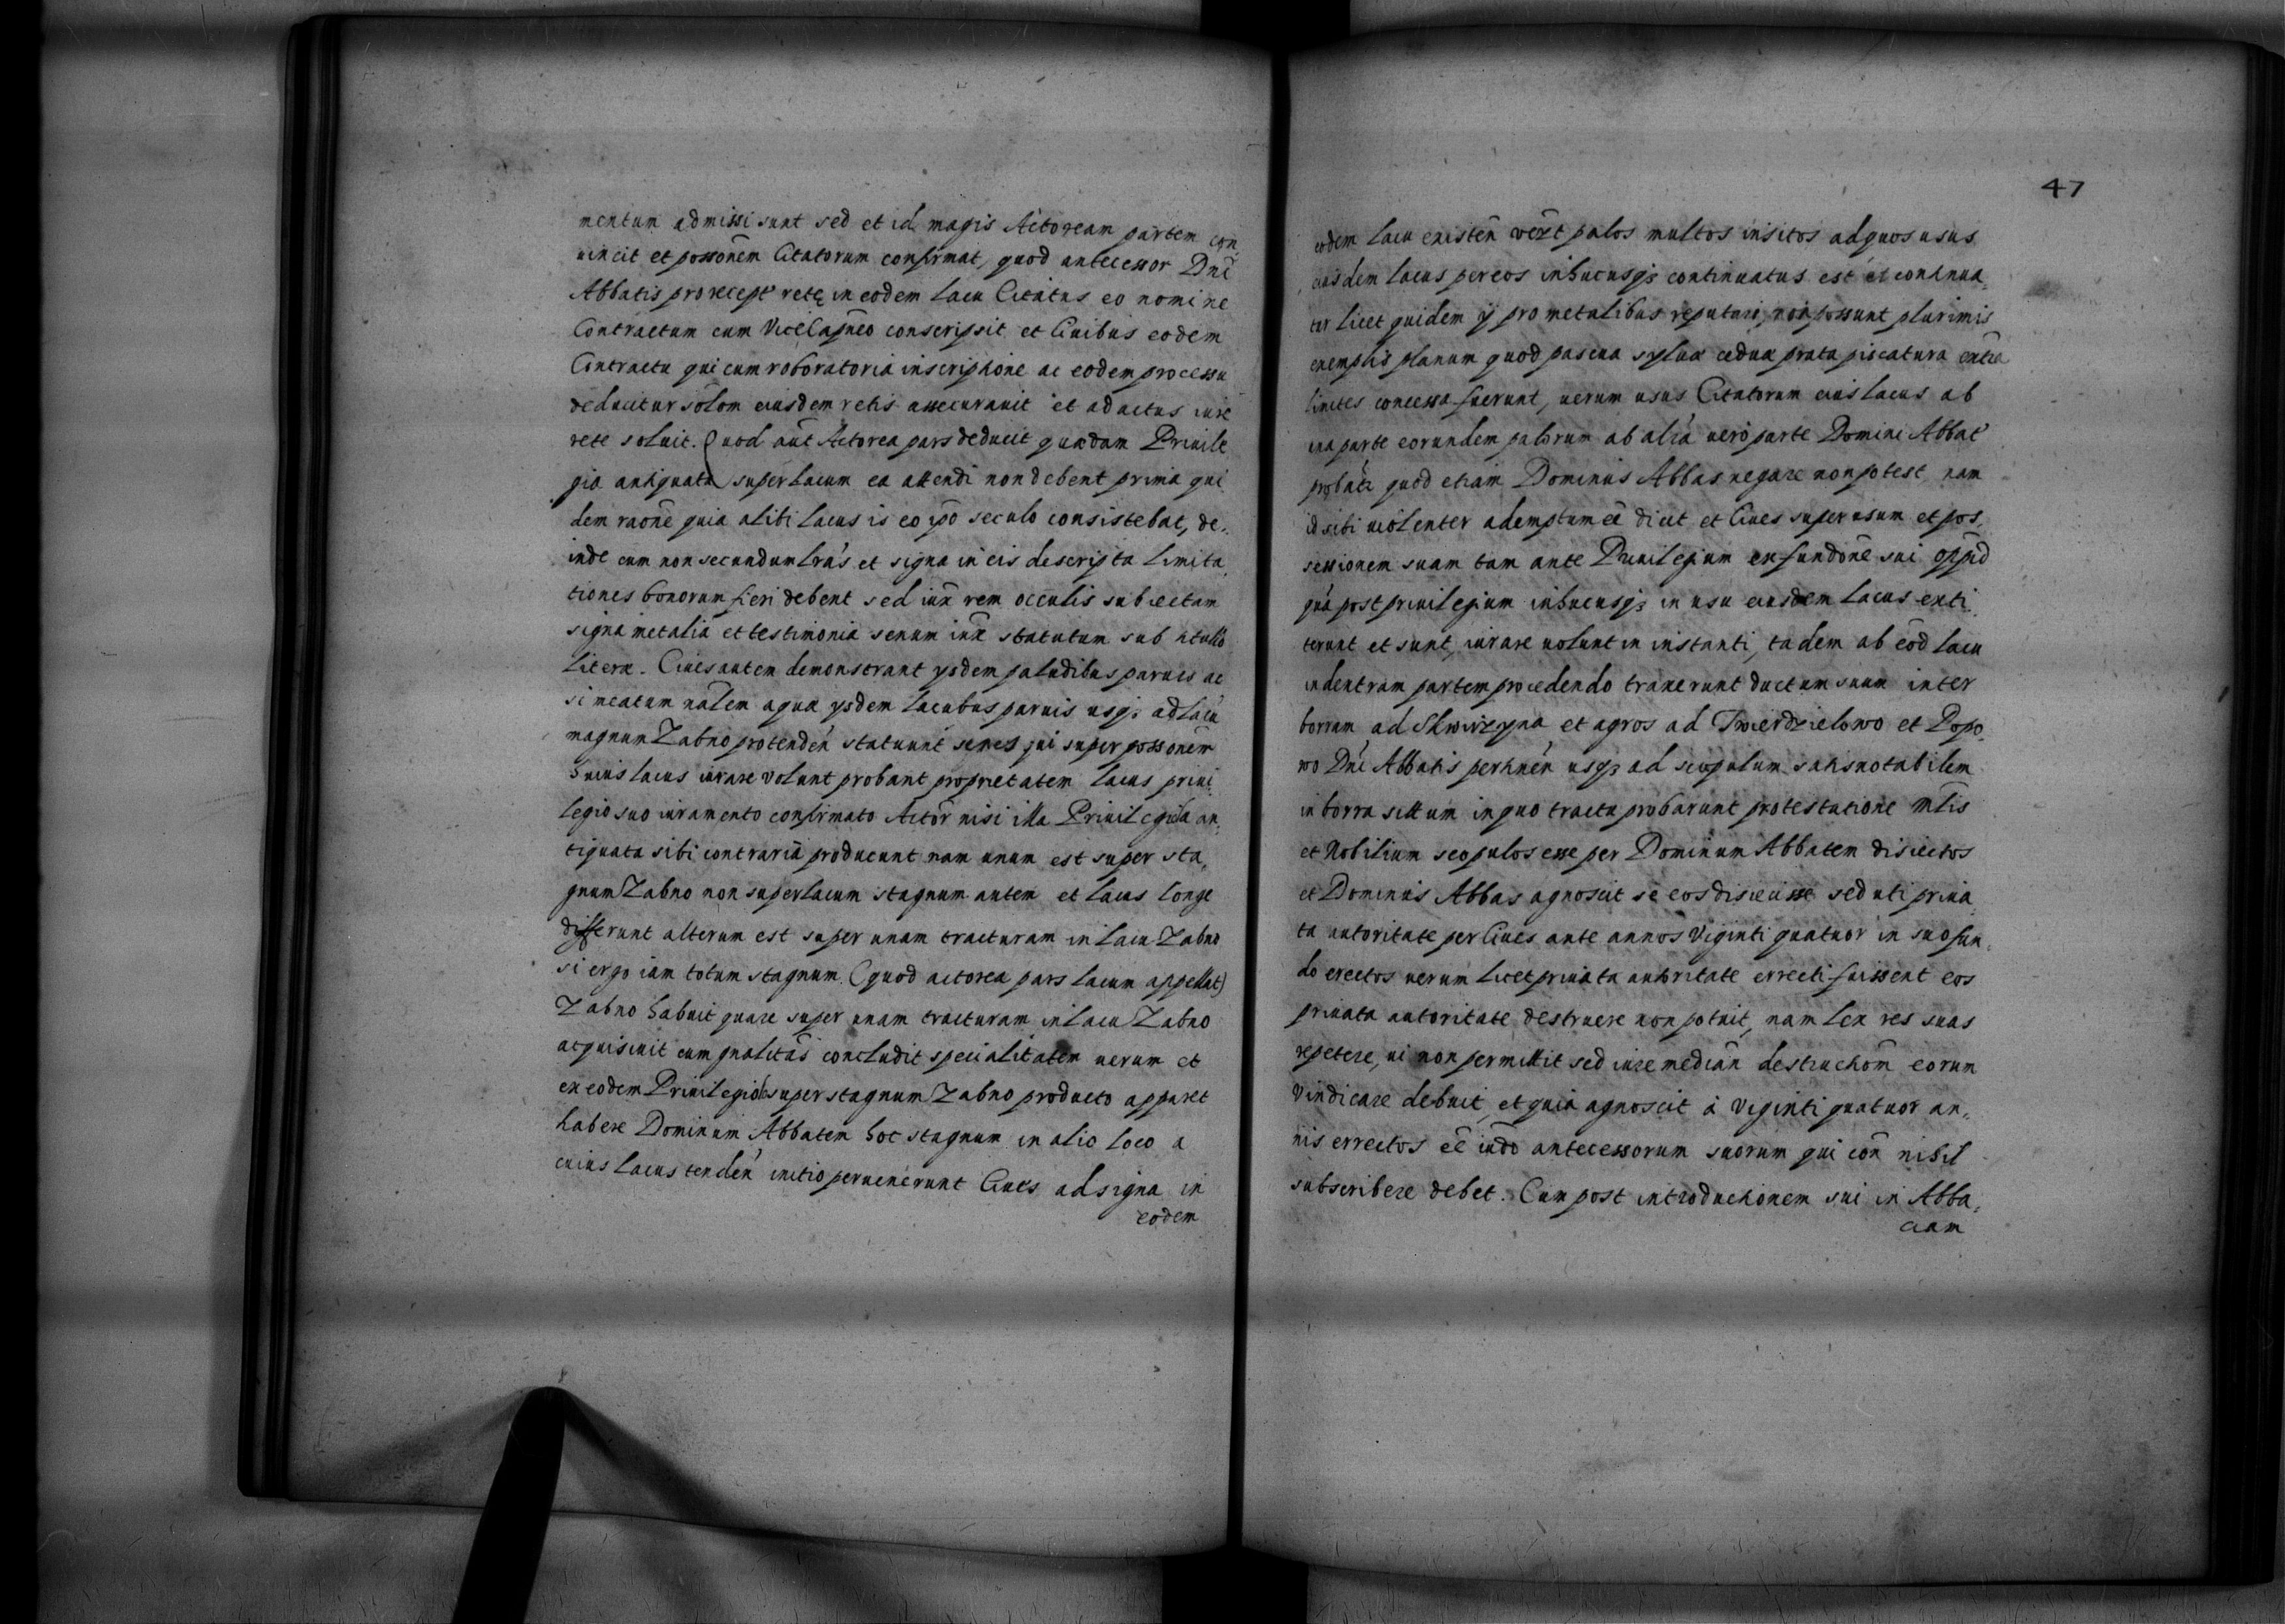 mentum admissi sunt sed et id magis Actoream partem con¸
uincit et possonem Citatorum confirmat, quod antecessor Dni
Abbatis pro recept rete in eodem lacu Citatus eo nomine
Contractum cum ViceCapneo conscripsit et Ciuibus eodem
Contractu qui cum roboratoria inscriptione ac eodem processu
deducitur solom eiusdem retis assecurauit et adactus iure
rete soluit. Quod aut Actorea pars deducit quædam Priuile
gia antiquata super lacum ea attendi non debent prima qui
dem raone quia alibi lacus is eo ipo seculo consistebat, de¸
inde cum non secundum lras et signa in eis descripta limita
tiones bonorum fieri debent sed iux rem occulis subiectam
signa metalia et testimonia senum iux statutum sub titullo
literæ. Ciues autem demonstrant ysdem paludibus paruis ac
si meatum nalem aquæ ysdem lacubus paruis usq; ad lacu
magnum Zabno protenden statuunt senes qui super possonem
huius lacus iurare volunt probant proprietatem lacus priui¸
legio suo iuramento confirmato Actor nisi illa Priuilegia an¸
tiquata sibi contraria producunt nam unum est super sta¸
gnum Zabno non super lacum stagnum autem et lacus longe
differunt alterum est super unam tracturam in lacu Zabno
si ergo iam totum stagnum (quod actorea pars lacum appellat)
Zabno habuit quare super unam tracturam in lacu Zabno
acquisiuit cum gnalitas concludit specialitatem uerum et
ex eodem Priuilegio super stagnum Zabno producto apparet
habere Dominum Abbatem hoc stagnum in alio loco a
cuius lacus tenden initio peruenerunt Ciues ad signa in
eodem
47
eodem lacu existen palos multos insitos ad quos usus
eiusdem lacus per eos inhucusq; continuatus est et continua¸
tur licet quidem ÿ pro metalibus reputari non possunt plurimis
exemplis planum quod pascua syluæ ceduæ prata piscatura extra
limites concessa fuerunt, uerum usus Citatorum eius lacus ab
una parte eorundem palorum ab alia uero parte Domini Abbat
probat quod etiam Dominus Abbas negare non potest nam
id sibi uiolenter ademptum ee dicit et Ciues super usum et pos¸
sessionem suam tam ante Priuilegium ex fundone sui oppid
qua post priuilegium inhucusq; in usu eiusdem lacus exti¸
terunt et sunt, iurare uolunt in instanti, tadem ab eod lacu
in dextram partem procedendo traxerunt ductum suum inter
borram ad Skwirzyna et agros ad Twierdzielowo et Popo¸
wo Dni Abbatis pertinen usq; ad scopulum satis notabilem
in borra situm in quo tractu probarunt protestatione mltis
et Nobilium scopulos esse per Dominum Abbatem disiectos
et Dominus Abbas agnoscit se eos disiecisse sed uti priua
ta autoritate per Ciues ante annos Viginti quatuor in suo fun¸
do erectos uerum licet priuata autoritate errecti fuissent eos
priuata autoritate destruere non potuit, nam lex res suas
repetere, ui non permittit sed iure median destructiom eorum
Vindicare debuit, et quia agnoscit à Viginti quatuor an¸
nis errectos ee iudo antecessorum suorum qui con nihil
subscribere debet. Cum post introductionem sui in Abba¸
ciam